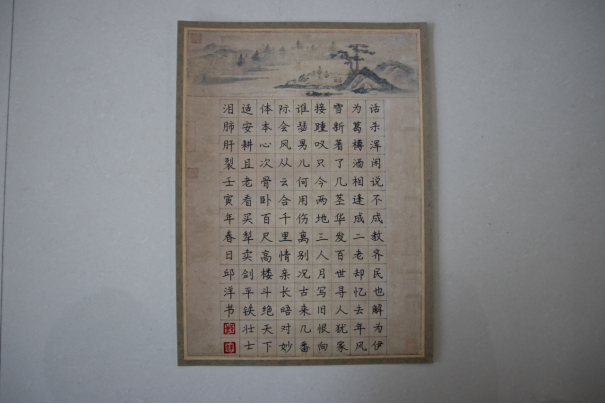 话杀浑闲说不成教齐民也解为伊
为葛樽酒相逢成二老却忆去年风
雪新着了几茎华发百世寻人犹冢
接踵叹只今两地三人月写旧恨向
谁瑟男儿何用伤离别况古来几番
际会风从云合千里情亲长晤对妙
体本心次骨卧百尺高楼斗绝天下
适安耕且老看买犁卖剑平铁壮士
泪肺肝裂壬寅年春日邱洋书